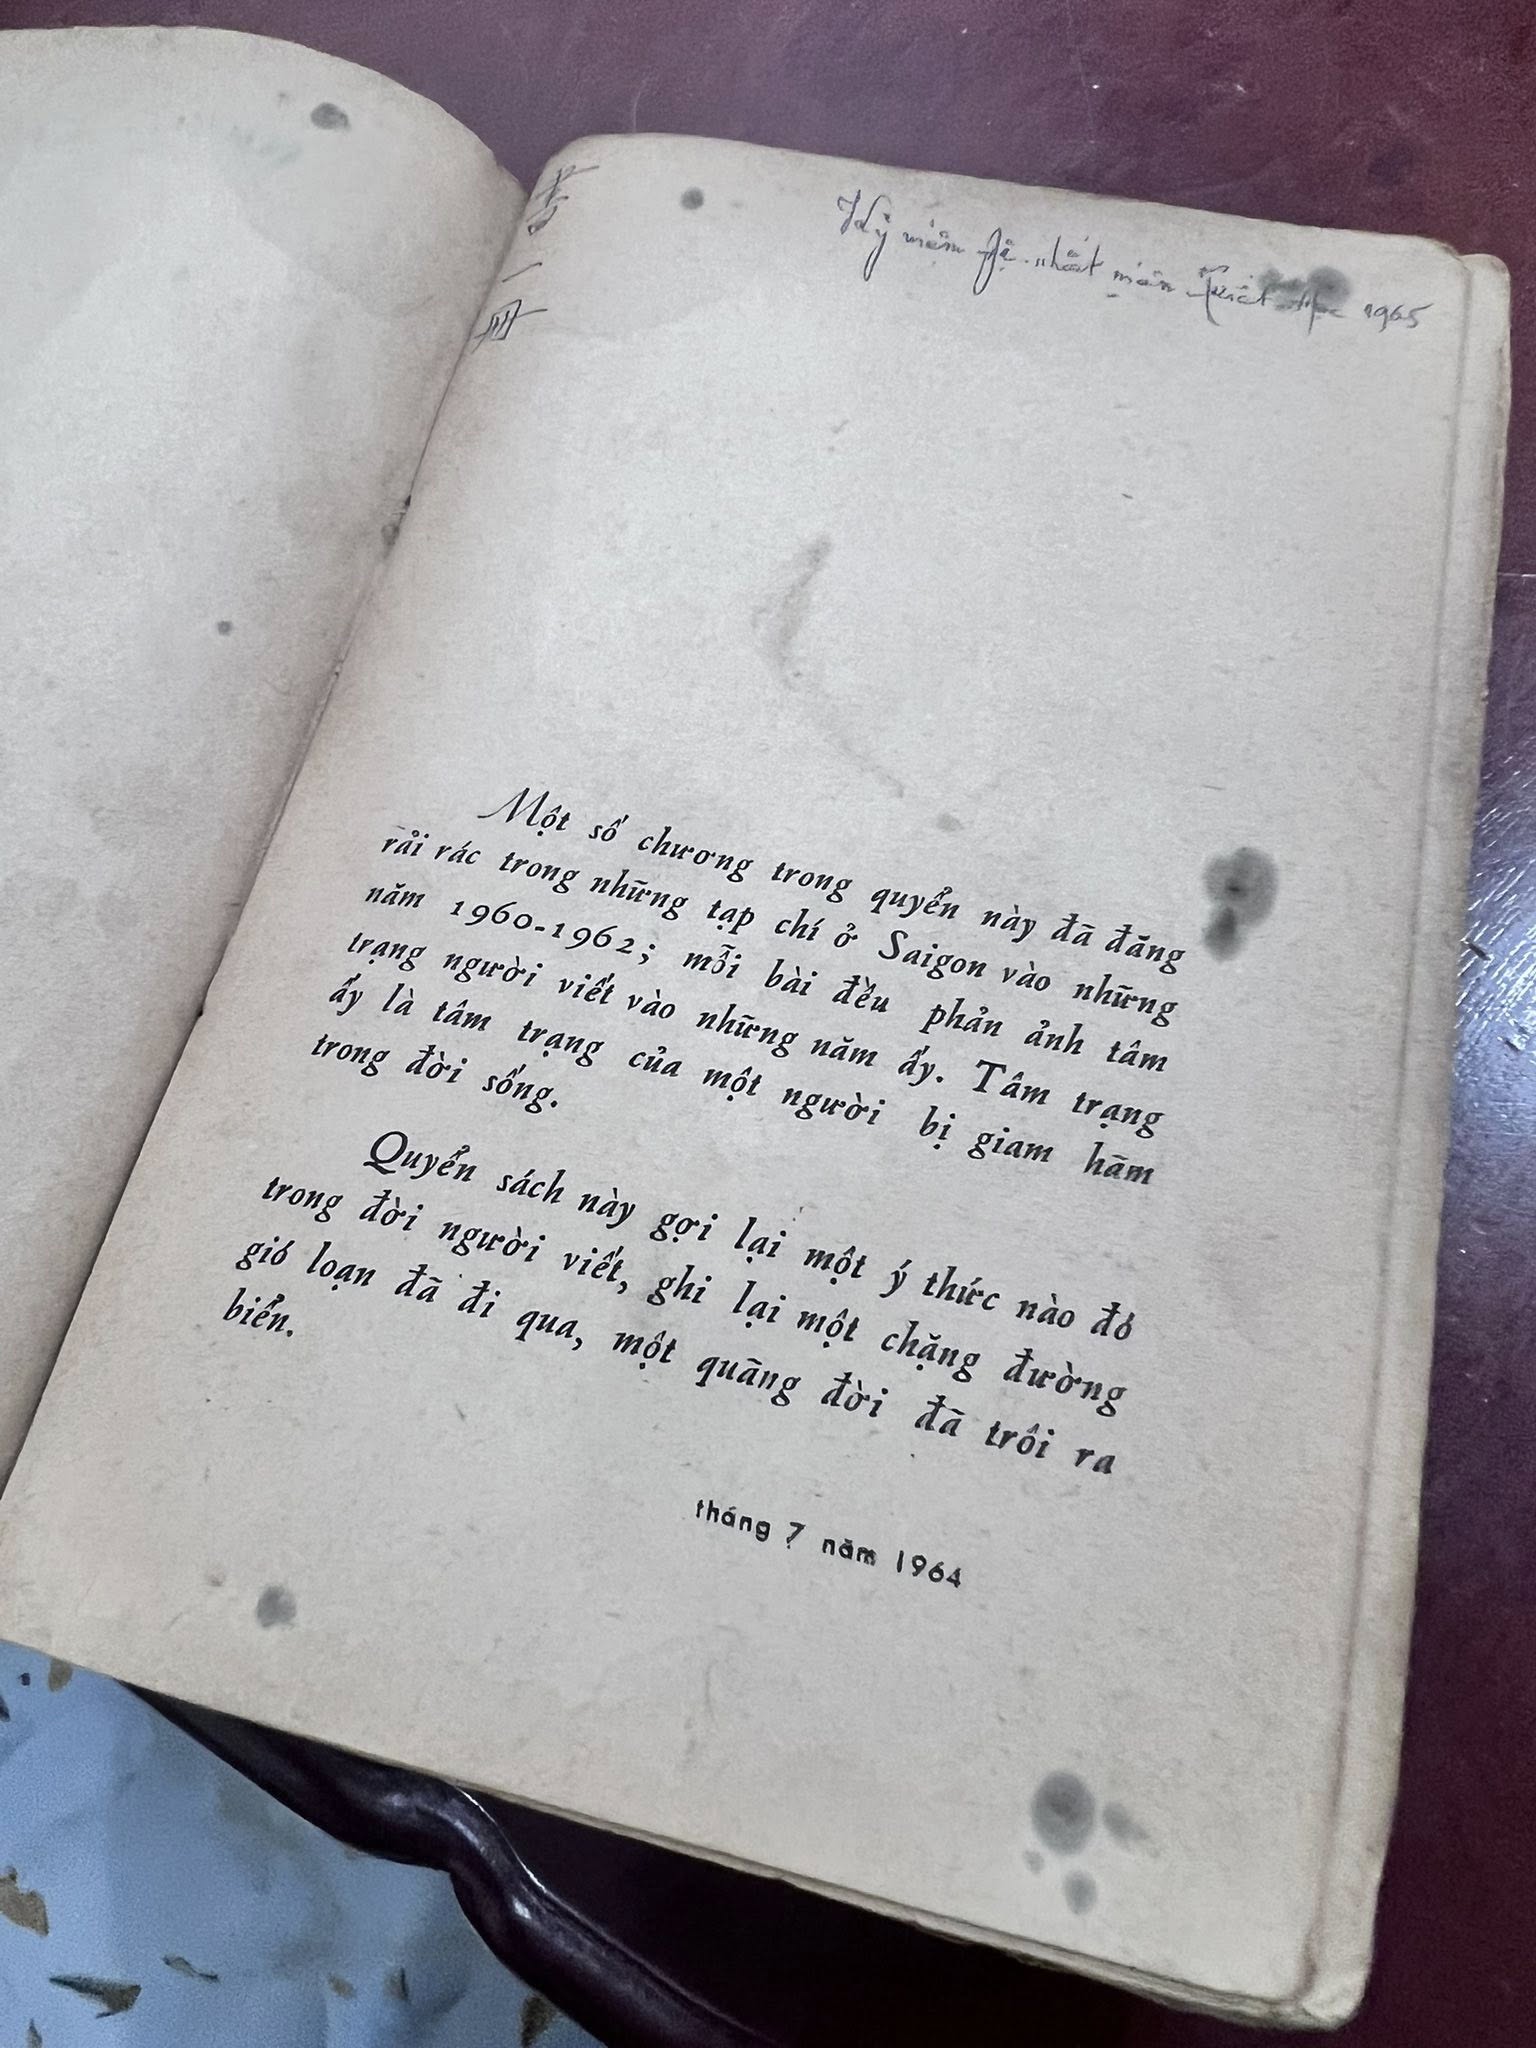 書
一
冊
Kỷ niệm đệ nhất niên Quốc Học 1965
Một số chương trong quyển này đã đăng
rải rác trong những tạp chí ở Saigon vào những
năm 1960-1962; mỗi bài đều phản ảnh tâm
trạng người viết vào những năm ấy. Tâm trạng
ấy là tâm trạng của một người bị giam hãm
trong đời sống.
Quyển sách này gợi lại một ý thức nào đó
trong đời người viết, ghi lại một chặng đường
gió loạn đã đi qua, một quãng đời đã trôi ra
biển.
tháng 7 năm 1964